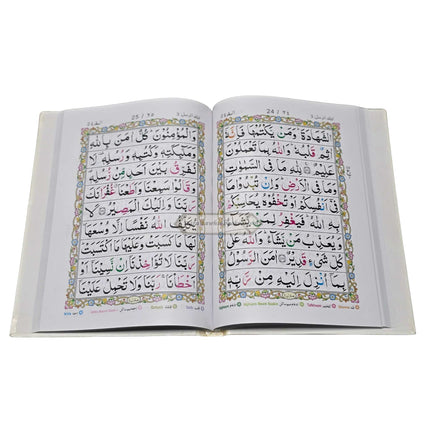 24 / ٢٤
الشَّهَادَةَ وَمَنْ يَّكْتُمْهَا فَاِنَّهٗٓ
اٰثِمٌ قَلْبُهٗ وَاللّٰهُ بِمَا تَعْمَلُوْنَ
عَلِيْمٌ لِلّٰهِ مَا فِى السَّمٰوٰتِ
وَمَا فِى الْاَرْضِ وَاِنْ تُبْدُوْا مَا
فِيْٓ اَنْفُسِكُمْ اَوْ تُخْفُوْهُ يُحَاسِبْكُمْ
بِهِ اللّٰهُ فَيَغْفِرُ لِمَنْ يَّشَآءُ
وَيُعَذِّبُ مَنْ يَّشَآءُ وَاللّٰهُ عَلٰى
كُلِّ شَيْءٍ قَدِيْرٌ اٰمَنَ الرَّسُوْلُ
بِمَآ اُنْزِلَ اِلَيْهِ مِنْ رَّبِّهٖ
25 / ٢٥
وَالْمُؤْمِنُوْنَ كُلٌّ اٰمَنَ بِاللّٰهِ
وَمَلٰٓئِكَتِهٖ وَكُتُبِهٖ وَرُسُلِهٖ لَا
نُفَرِّقُ بَيْنَ اَحَدٍ مِّنْ رُّسُلِهٖ
وَقَالُوْا سَمِعْنَا وَاَطَعْنَا غُفْرَانَكَ
رَبَّنَا وَاِلَيْكَ الْمَصِيْرُ لَا
يُكَلِّفُ اللّٰهُ نَفْسًا اِلَّا وُسْعَهَا
لَهَا مَا كَسَبَتْ وَعَلَيْهَا مَا اكْتَسَبَتْ
رَبَّنَا لَا تُؤَاخِذْنَآ اِنْ نَّسِيْنَآ اَوْ
اَخْطَاْنَا رَبَّنَا وَلَا تَحْمِلْ عَلَيْنَآ